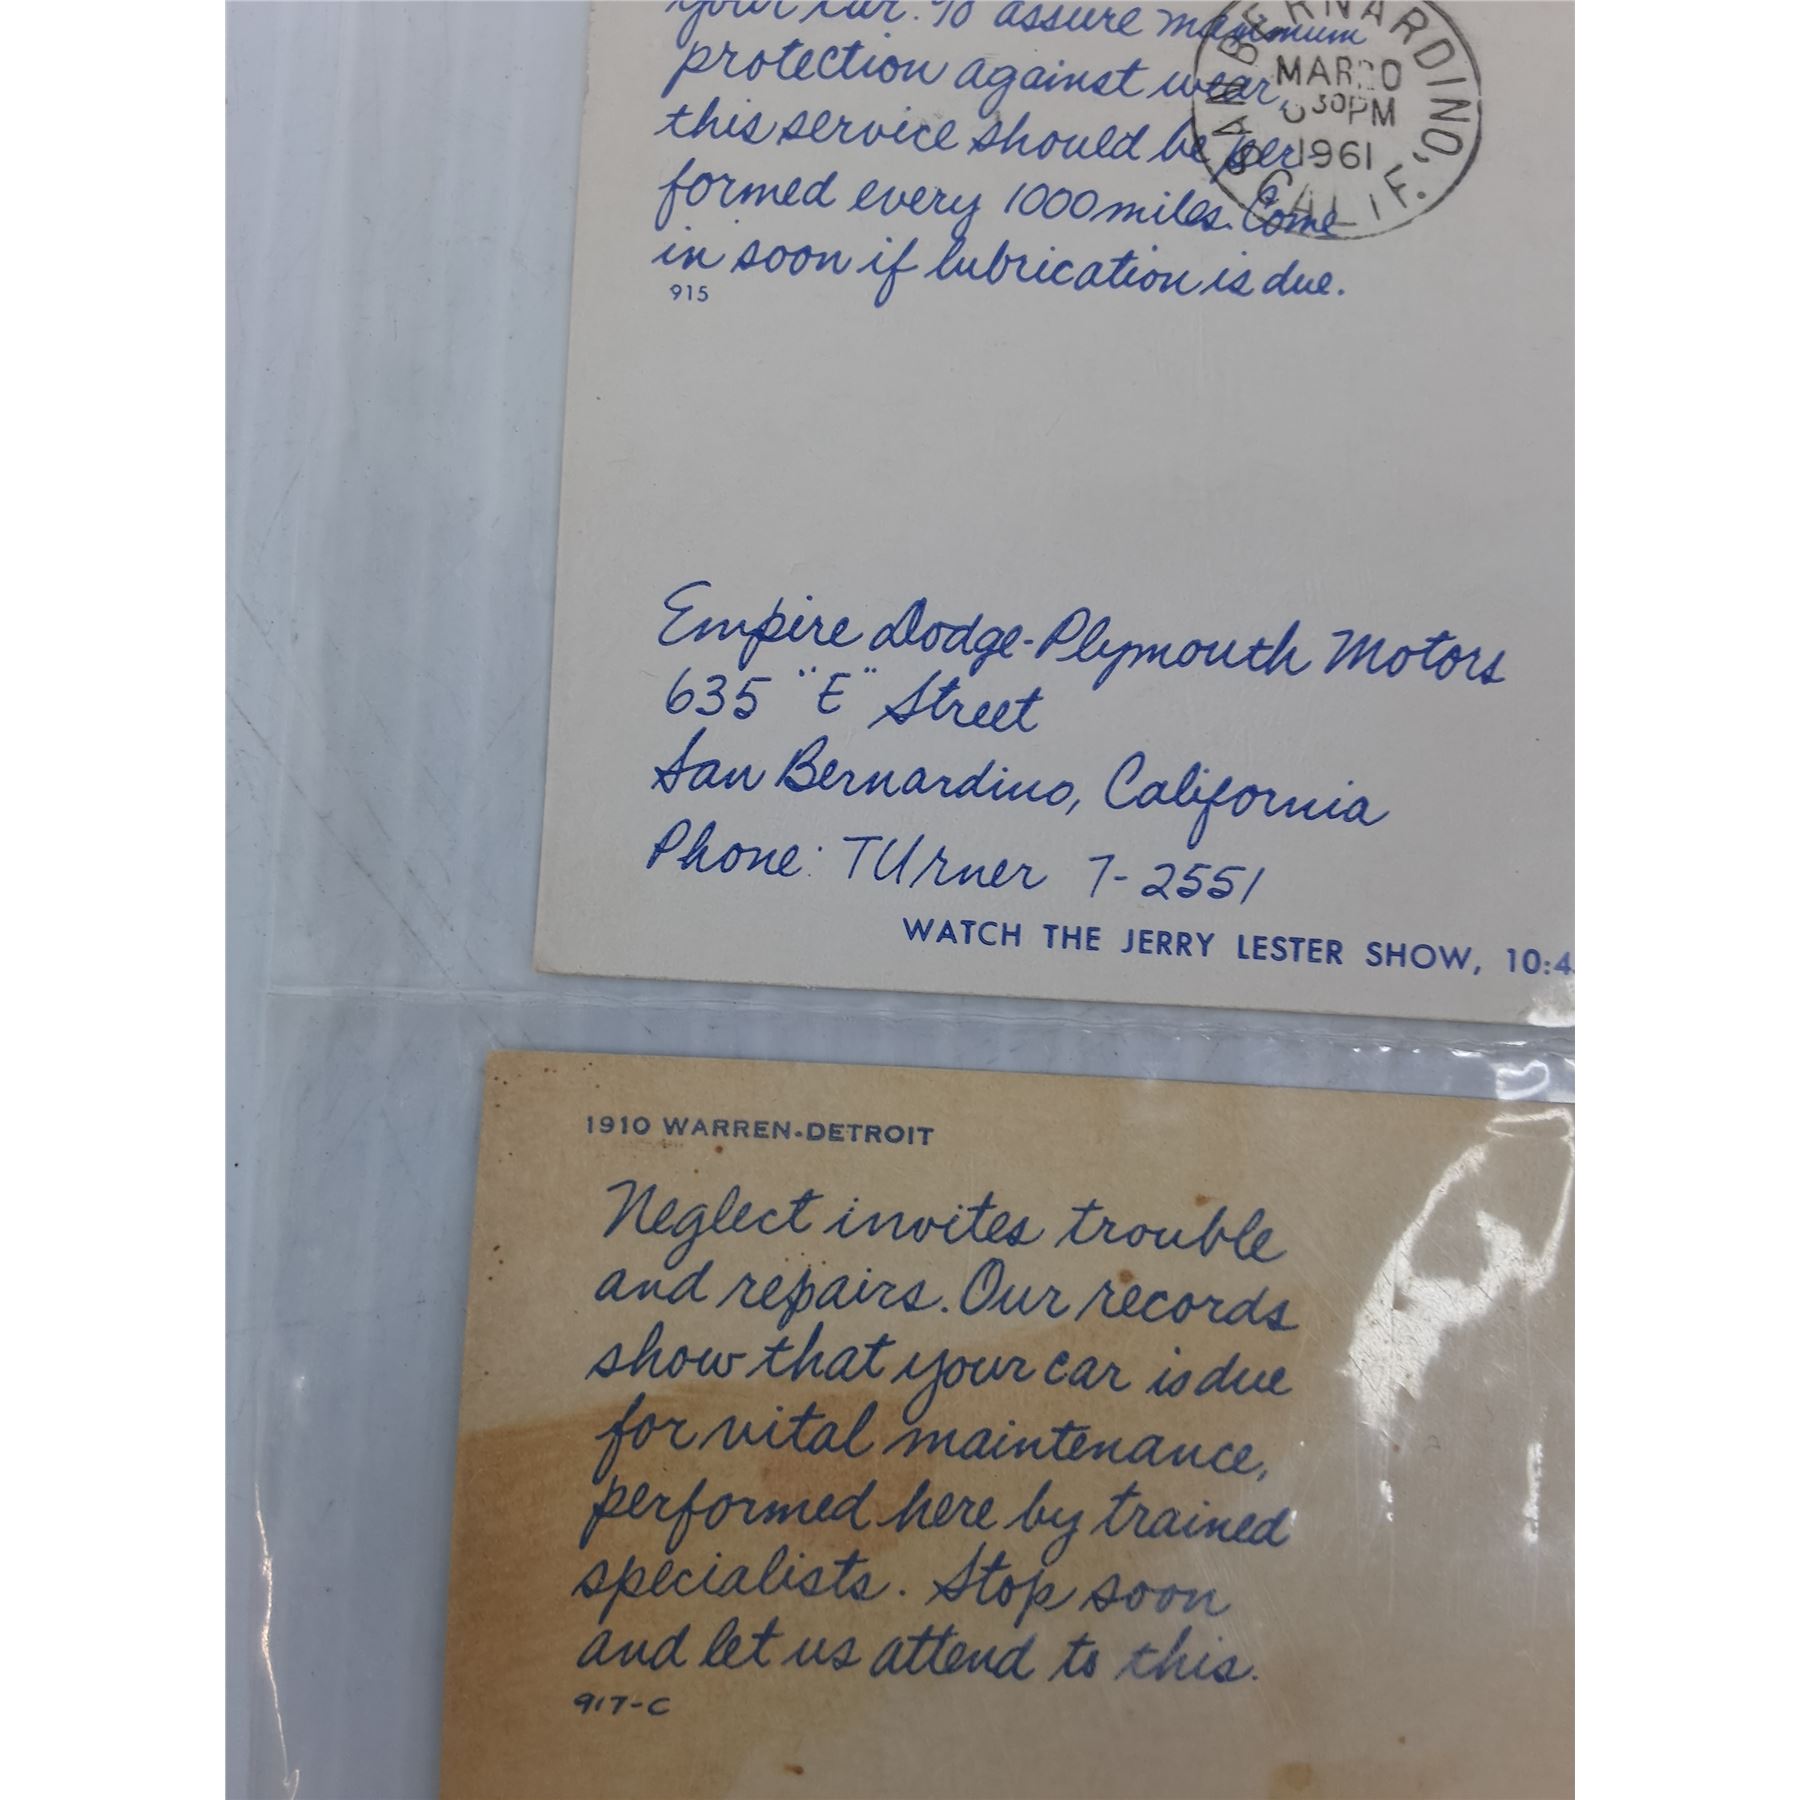 your car. To assure maximum
protection against wear,
this service should be per-
formed every 1000 miles. Come
in soon if lubrication is due.
915
SAN BERNARDINO, CALIF.
MAR 20
30PM
1961
Empire Dodge-Plymouth Motors
635 "E" Street
San Bernardino, California
Phone: TUrner 7-2551
WATCH THE JERRY LESTER SHOW, 10:4
1910 WARREN-DETROIT
Neglect invites trouble
and repairs. Our records
show that your car is due
for vital maintenance,
performed here by trained
specialists. Stop soon
and let us attend to this.
917-C